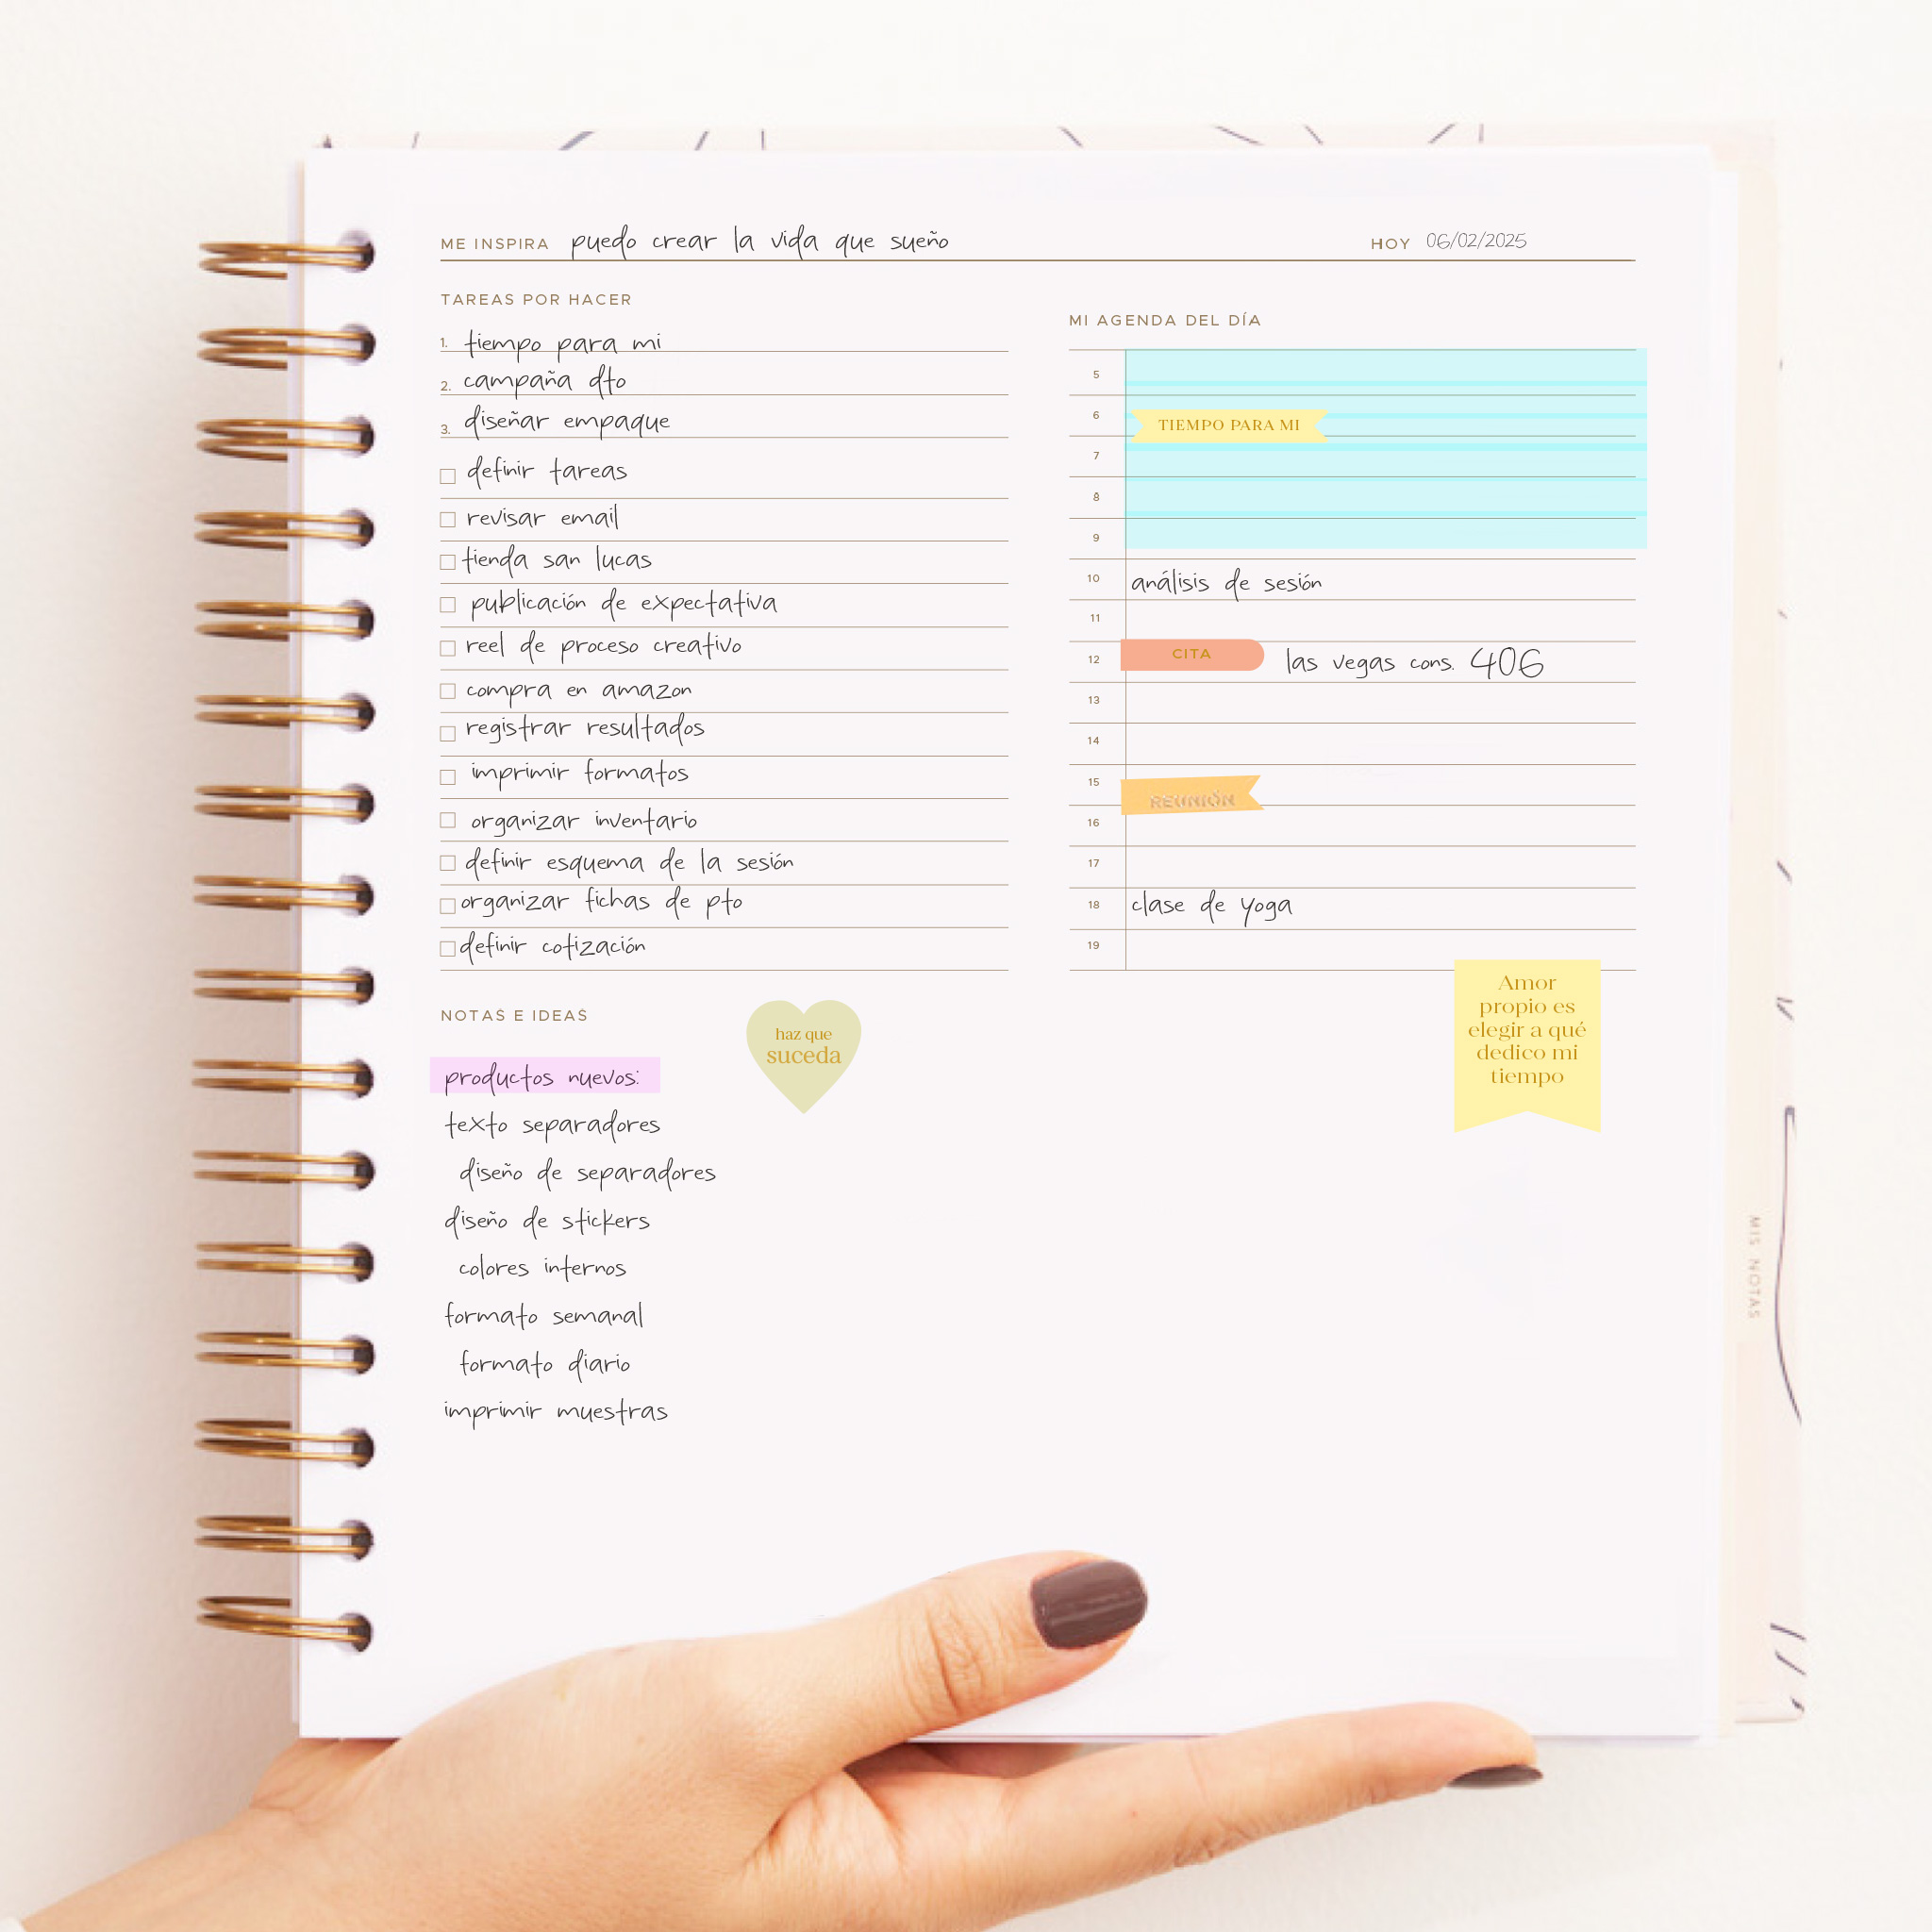 ME INSPIRA puedo crear la vida que sueño
HOY 06/02/2025
TAREAS POR HACER
1. tiempo para mi
2. campaña dto
3. diseñar empaque
definir tareas
revisar email
tienda san lucas
publicación de expectativa
reel de proceso creativo
compra en amazon
registrar resultados
imprimir formatos
organizar inventario
definir esquema de la sesión
organizar fichas de pto
definir cotización
MI AGENDA DEL DÍA
5
6 TIEMPO PARA MI
7
8
9
10 análisis de sesión
11
12 CITA las vegas cons. 406
13
14
15 REUNIÓN
16
17
18 clase de yoga
19
NOTAS E IDEAS
haz que
suceda
productos nuevos:
texto separadores
diseño de separadores
diseño de stickers
colores internos
formato semanal
formato diario
imprimir muestras
Amor
propio es
elegir a qué
dedico mi
tiempo
MIS NOTAS